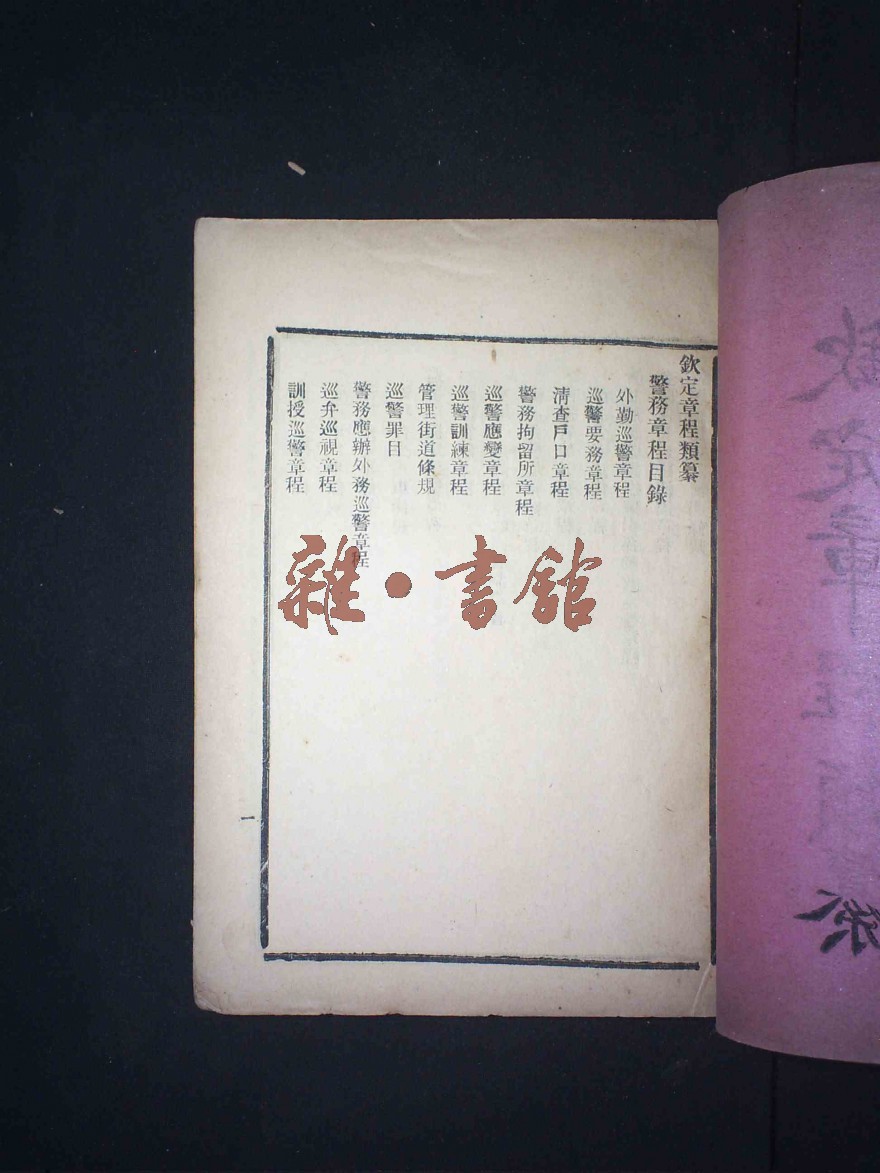 欽定章程類纂
警務章程目錄
外勤巡警章程
巡警要務章程
清查戶口章程
警務拘留所章程
巡警應變章程
巡警訓練章程
管理街道條規
巡警罪目
警務應辦外務巡警章程
巡弁巡視章程
訓授巡警章程
一
雜·書館